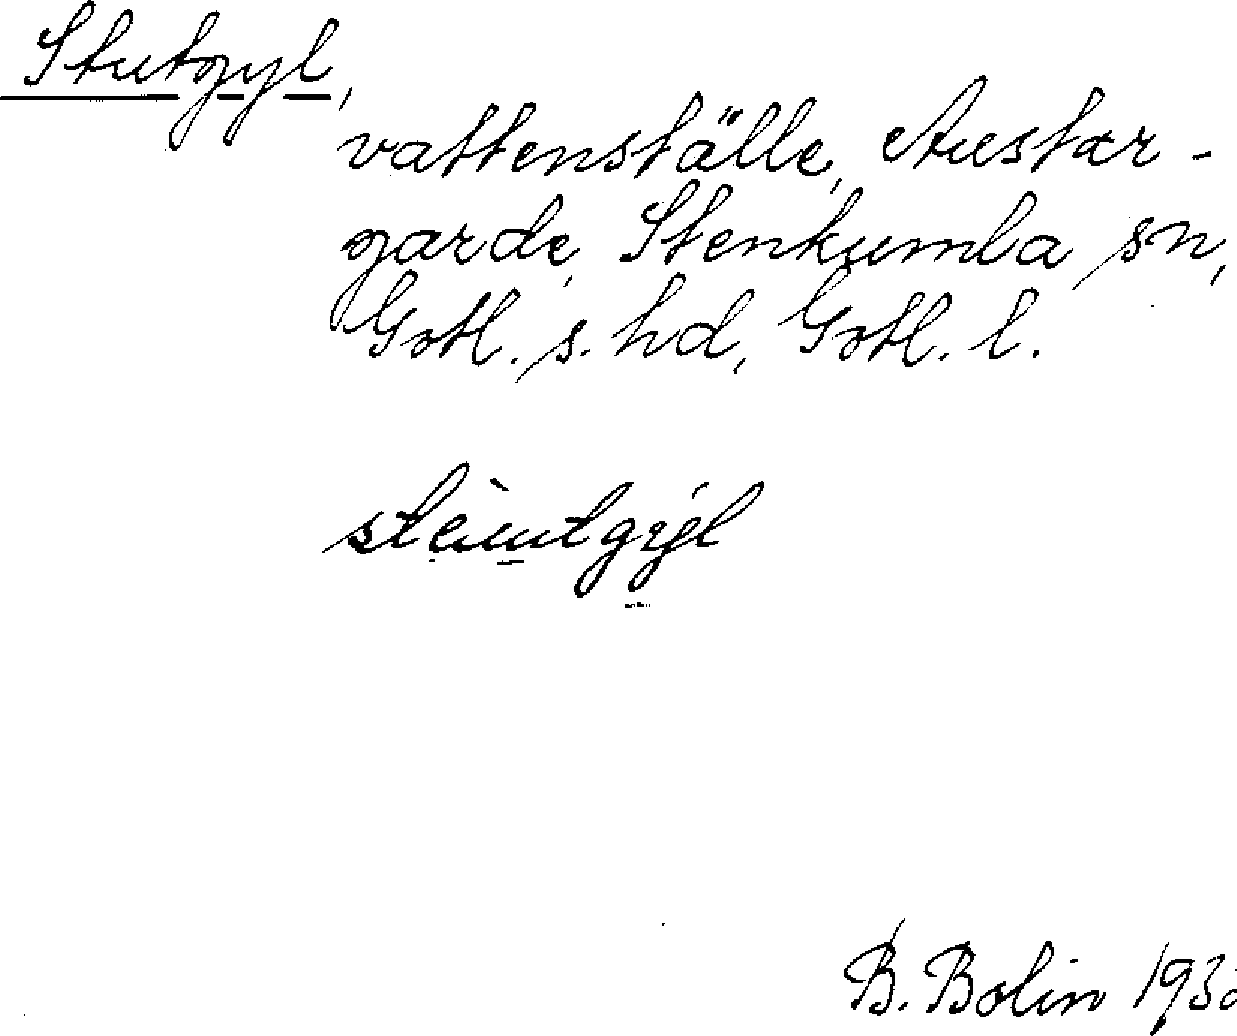 Stutgyl,
vattenställe, Austar-
garde, Stenkumla sn,
Gotl. s. hd, Gotl. l.
B. Bolin 193